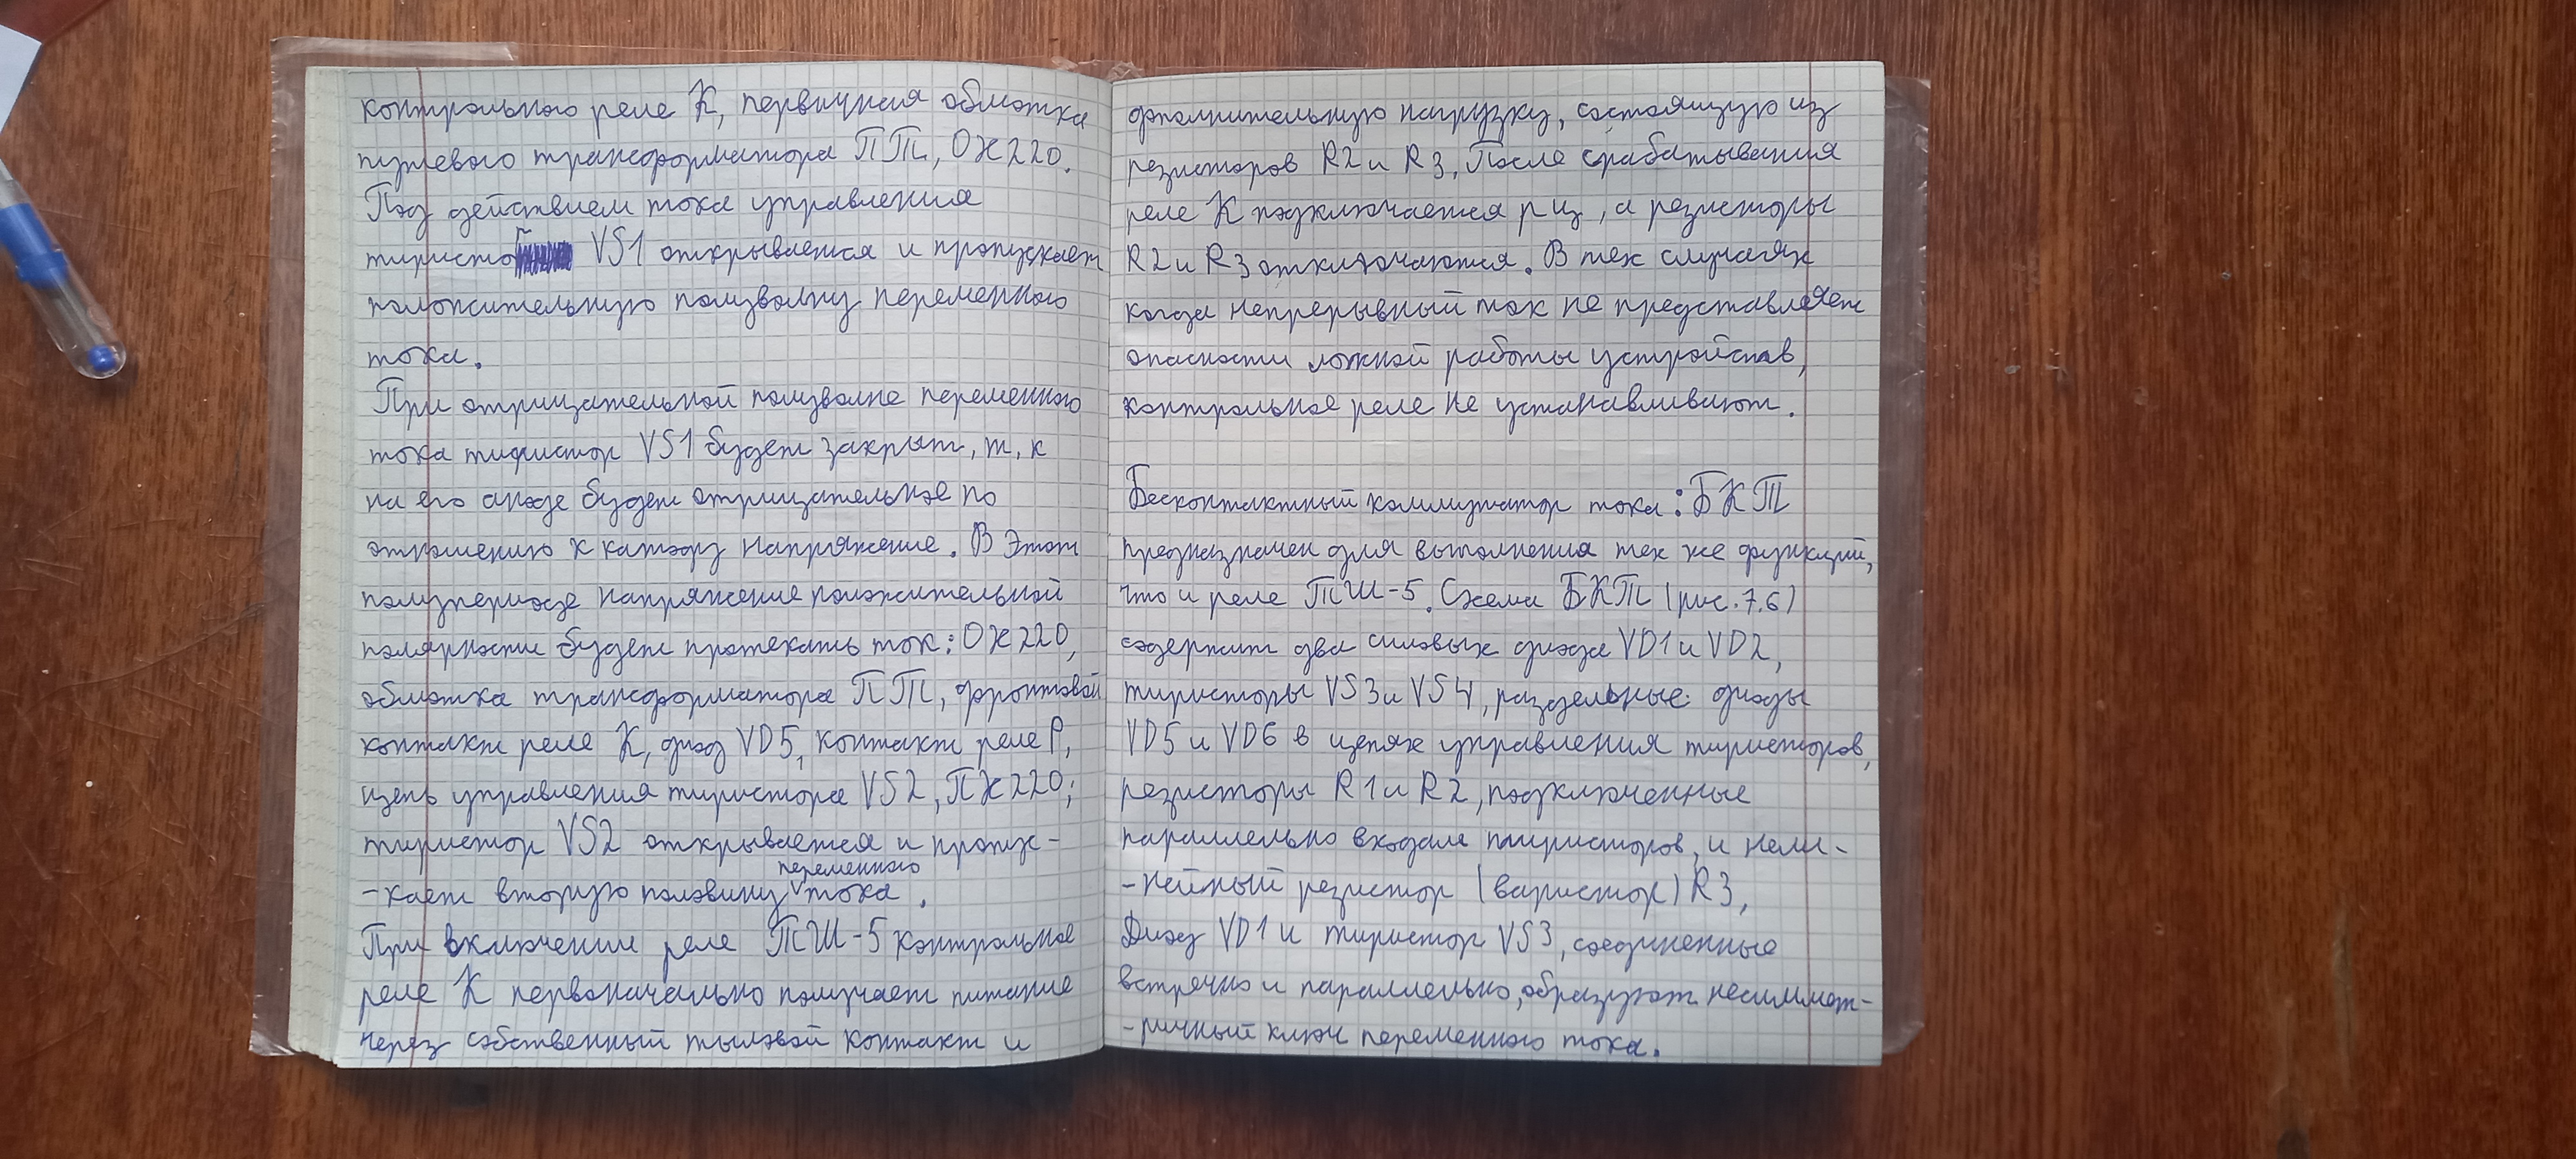 контрольного реле К, первичная обмотка
путевого трансформатора ПТ, ОХ220.
Под действием тока управления
тиристо VS1 открывается и пропускает
положительную полуволну переменного
тока.
При отрицательной полуволне переменного
тока тиристор VS1 будет закрыт, т, к
на его аноде будет отрицательное по
отношению к катоду напряжение. В Этот
полупериоде напряжение положительной
полярности будет протекать ток: ОХ220,
обмотка трансформатора ПТ, фронтовой
контакт реле К, диод VD5, контакт реле Р,
цепь управления тиристора VS2, ПХ220;
тиристор VS2 открывается и пропус-
-кает вторую половину переменного тока.
При включении реле ТШ-5 контрольное
реле К первоначально получает питание
через собственный тыловой контакт и
дополнительную нагрузку, состоящую из
резисторов R2 и R3. После срабатывания
реле К подключается рц, а резисторы
R2 и R3 отключаются. В тех случаях
когда непрерывный ток не представляет
опасности ложной работы устройств,
контрольное реле не устанавливают.
Бесконтактный коммутатор тока: БКТ
предназначен для выполнения тех же функций,
что и реле ТШ-5. Схема БКТ (рис. 7.6)
содержит два силовых диода VD1 и VD2,
тиристоры VS3 и VS4, раздельные диоды
VD5 и VD6 в цепях управления тиристоров,
резисторы R1 и R2, подключенные
параллельно входам тиристоров, и нели-
-нейный резистор (варистор) R3,
Диод VD1 и тиристор VS3, соединенные
встречно и параллельно, образуют несиммет-
-ричный ключ переменного тока.